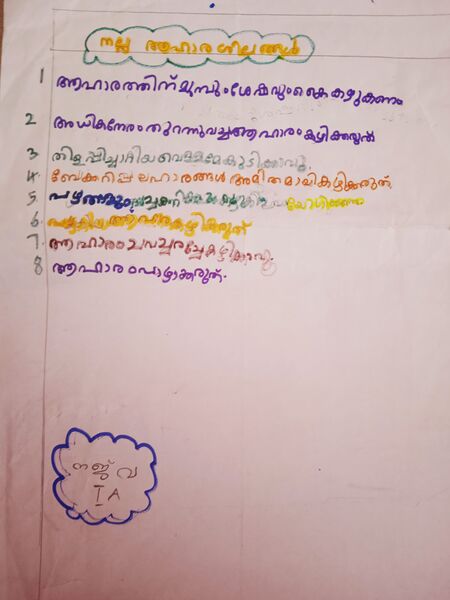 നല്ല ആഹാരശീലങ്ങൾ
1 ആഹാരത്തിന് മുമ്പും ശേഷവും കൈ കഴുകണം
2 അധികനേരം തുറന്നുവച്ച ആഹാരം കഴിക്കരുത്
3 തിളപ്പിച്ചാറിയ വെള്ളമേ കുടിക്കാവൂ.
4. ബേക്കറിപ്പലഹാരങ്ങൾ അമിതമായി കഴിക്കരുത്.
5. പഴങ്ങളും പച്ചക്കറികളും കഴുകി ഉപയോഗിക്കണം
6. പഴകിയ ആഹാരം കഴിക്കരുത്
7. ആഹാരം ചവച്ചരച്ചേ കഴിക്കാവൂ.
8 ആഹാരം പാഴാക്കരുത്.
നജ്വ
I A